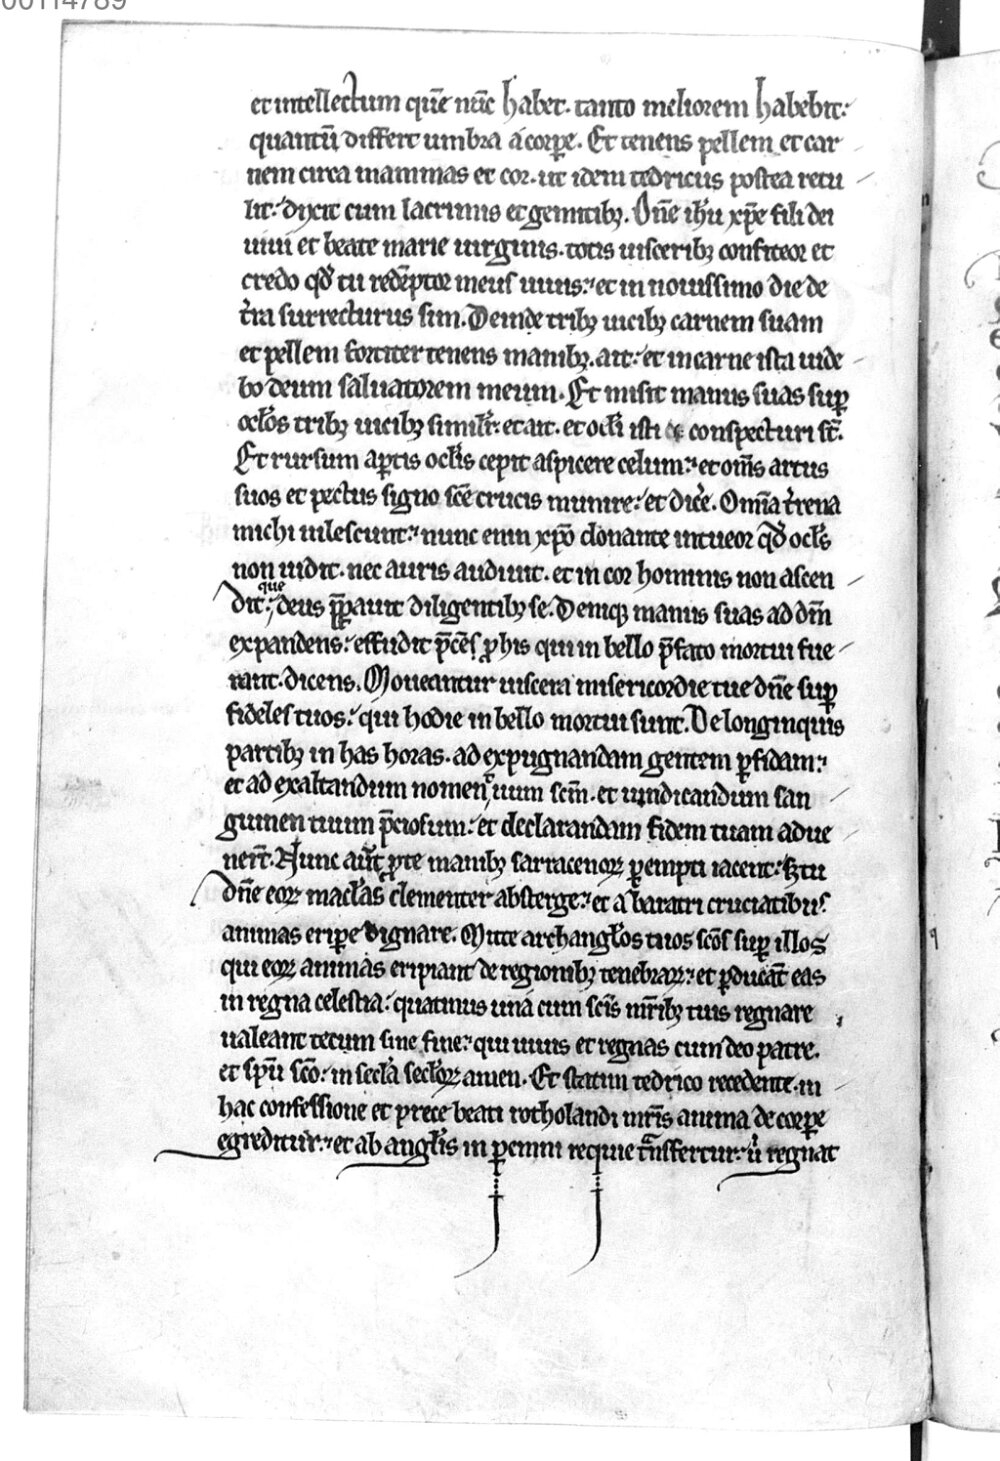 00114789
et intellectum que̅ nu̅c habet. tanto meliorem habebit:
quantu̅ differt umbra a corꝑe. Et tenens pellem et car
nem circa mammas et cor. ut idem tedricus postea retu
lit: dixit cum lacrimis et gemitibꝫ. Dn̅e ihu̅ xp̅e fili dei
uiui et beate marie uirginis. totis uisceribꝫ confiteor et
credo qd̅ tu rede̅ptor meus uiuis: et in nouissimo die de
t̅ra surrecturus sim. Deinde tribꝫ uicibꝫ carnem suam
et pellem fortiter tenens manibꝫ. ait: et in carne ista uide
bo deum saluatorem meum. Et misit manus suas suꝑ
oc̅los tribꝫ uicibꝫ simil̅r. et ait. et oc̅li isti conspecturi st̅.
Et rursum aꝑtis oc̅lis cepit aspicere celum: et om̅s artus
suos et pectus signo sc̅e crucis munire: et dic̅e. Om̅ia t̅rena
michi uilescunt: nunc enim xp̅o donante intueor qd̅ oc̅ls
non uidit. nec auris audiuit. et in cor hominis non ascen
dit: que deus p̅parauit diligentibꝫ se. Deniqꝫ manus suas ad dn̅m
expandens: effudit p̅ces ꝓ his qui in bello p̅fato mortui fue
rant. dicens. Moueantur uiscera misericordie tue dn̅e suꝑ
fideles tuos: qui hodie in bello mortui sunt. De longinquis
partibꝫ in has horas. ad expugnandam gentem ꝑfidam:
et ad exaltandum nomen tuum sc̅m. et uindicandum san
guinen tuum p̅ciosum: et declarandam fidem tuam adue
ner̅t. Nunc au̅t ꝓ te manibꝫ sarracenoꝝ ꝑempti iacent: sꝫ tu
dn̅e eoꝝ mac̅las clementer absterge: et a baratri cruciatibus
animas eriꝑe dignare. Mitte archang̅los tuos sc̅os suꝑ illos
qui eoꝝ animas eripiant de regionibꝫ tenebraꝝ: et ꝑduca̅t eas
in regna celestia: quatinus una cum sc̅is mr̅ibꝫ tuis regnare
ualeant tecum sine fine: qui uiuis et regnas cum deo patre.
et sp̅u sc̅o: in sec̅la sec̅loꝝ amen. Et statim tedrico recedente. in
hac confessione et prece beati rotholandi mr̅is anima de corꝑe
egreditur: et ab ang̅lis in ꝑenni requie t̅nsfertur: u̅ regnat